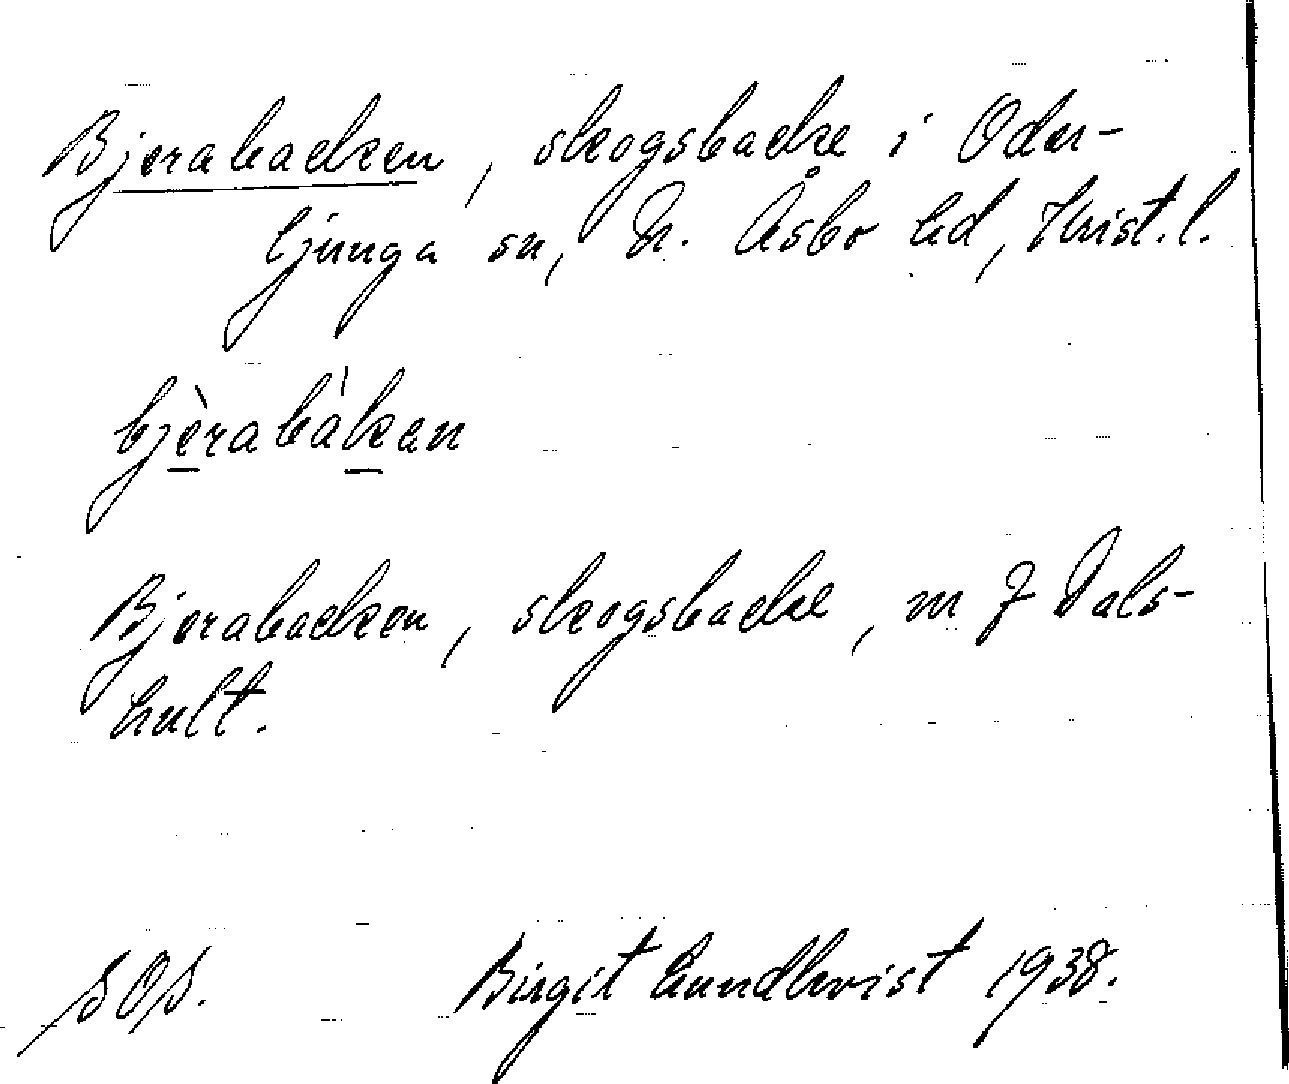 Bjerabacken, skogsbacke i Oder-
ljunga sn, N. Åsbo hd, Krist. l.
bjèrabàkan
Bjerabacken, skogsbacke, m J Dals-
hult.
SOS. Birgit Lundkvist 1938.